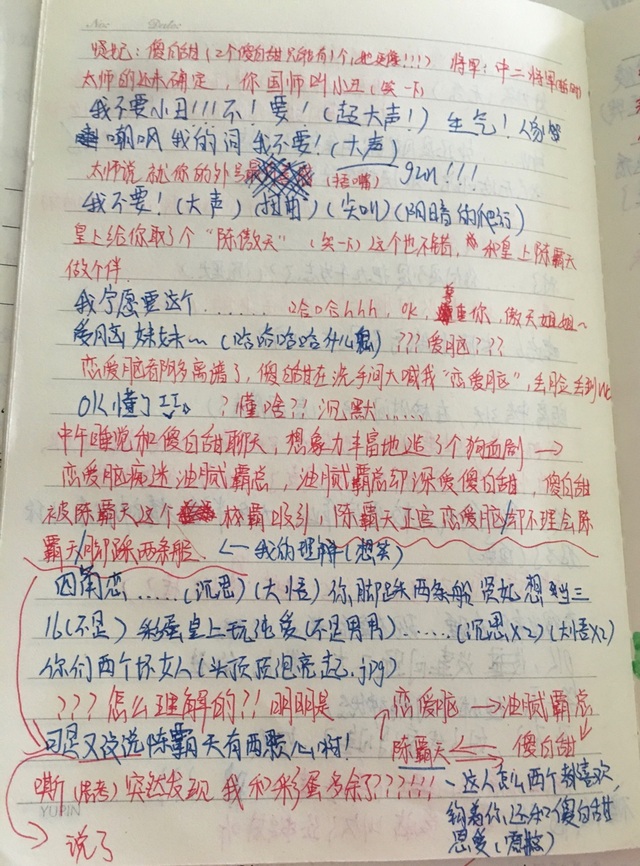 No. Date.
贤妃：傻白甜（2个傻白甜只能有1个，!!!） 将军：中二将军
太师的还未确定，你国师叫小丑（笑一下）
我不要小丑!!!不！要！（超大声！）生气！
嘲讽我的词 我不要！（大声）
太师说就你的外号（捂嘴） gun!!!
我不要！（大声）（扭曲）（尖叫）（阴暗的爬行）
皇上给你取了个“陈傲天”（笑一下）这个也不错，和皇上陈霸天
做个伴
我宁愿要这个........ 哈哈哈hhh，ok，尊重你，傲天姐姐~
恋爱脑妹妹~（哈哈哈哈什么鬼）???爱脑???
恋爱脑都够离谱了，傻白甜在洗手间大喊我“恋爱脑”，丢脸丢到
OK懂了 ？懂啥?!沉默......
中午睡觉和傻白甜聊天，想象力丰富地造了个狗血剧→
恋爱脑痴迷油腻霸总，油腻霸总却深爱傻白甜，傻白甜
被陈霸天这个校霸吸引，陈霸天正宫恋爱脑却不理会陈
霸天脚踩两条船. ←我的理解（想笑）
四角恋......（沉思）（大悟）你脚踩两条船 贤妃想当三
儿（不是）彩蛋皇上玩纯爱（不是男男）......（沉思x2）（大悟x2）
你们两个坏女人（头顶灯泡亮起.jpg）
???怎么理解的?!明明是 恋爱脑→油腻霸总
可是又没说陈霸天有两颗心啊！ 陈霸天 傻白甜
嘶（思考）突然发现我和彩蛋多余了???!!! - 这人怎么两个都喜欢，
钓着你，还和傻白甜
恩爱
YURUN
说了